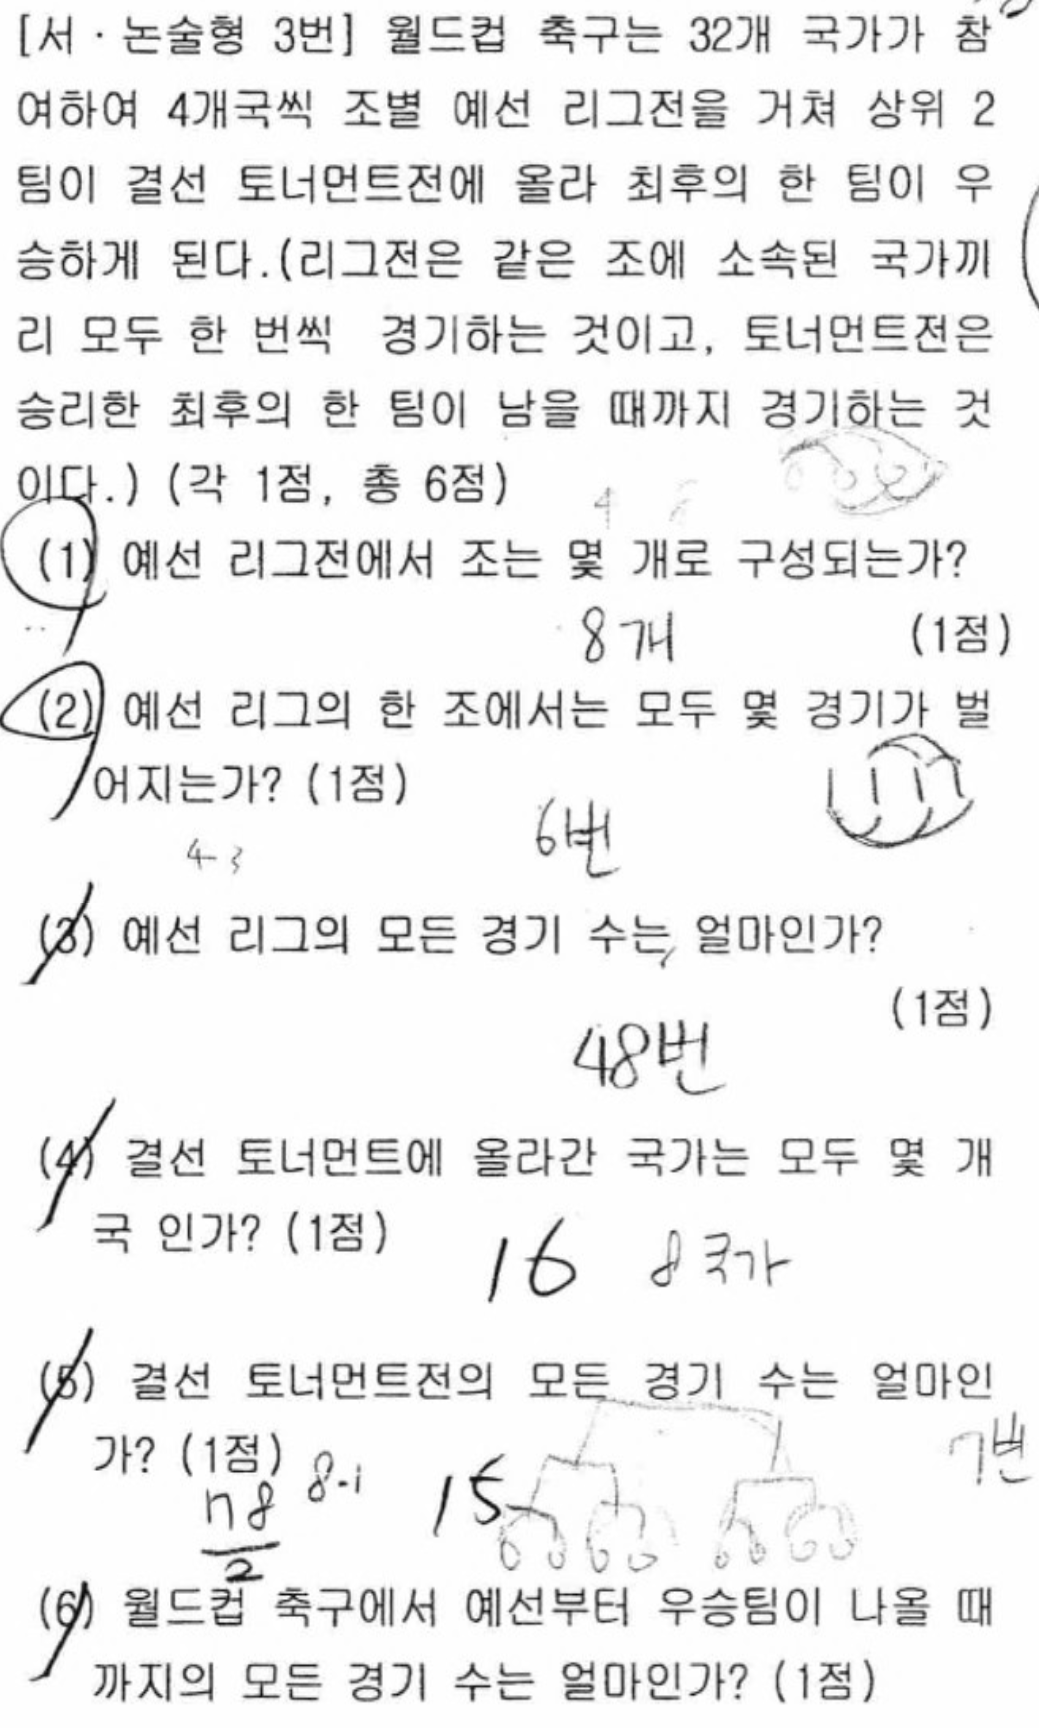 [서·논술형 3번] 월드컵 축구는 32개 국가가 참
여하여 4개국씩 조별 예선 리그전을 거쳐 상위 2
팀이 결선 토너먼트전에 올라 최후의 한 팀이 우
승하게 된다.(리그전은 같은 조에 소속된 국가끼
리 모두 한 번씩 경기하는 것이고, 토너먼트전은
승리한 최후의 한 팀이 남을 때까지 경기하는 것
이다.) (각 1점, 총 6점)
(1) 예선 리그전에서 조는 몇 개로 구성되는가?
8개 (1점)
(2) 예선 리그의 한 조에서는 모두 몇 경기가 벌
어지는가? (1점)
6번
4 3
(3) 예선 리그의 모든 경기 수는 얼마인가?
(1점)
48번
(4) 결선 토너먼트에 올라간 국가는 모두 몇 개
국 인가? (1점)
16 8국가
(5) 결선 토너먼트전의 모든 경기 수는 얼마인
가? (1점) 7번
8-1 15
n8
2
(6) 월드컵 축구에서 예선부터 우승팀이 나올 때
까지의 모든 경기 수는 얼마인가? (1점)